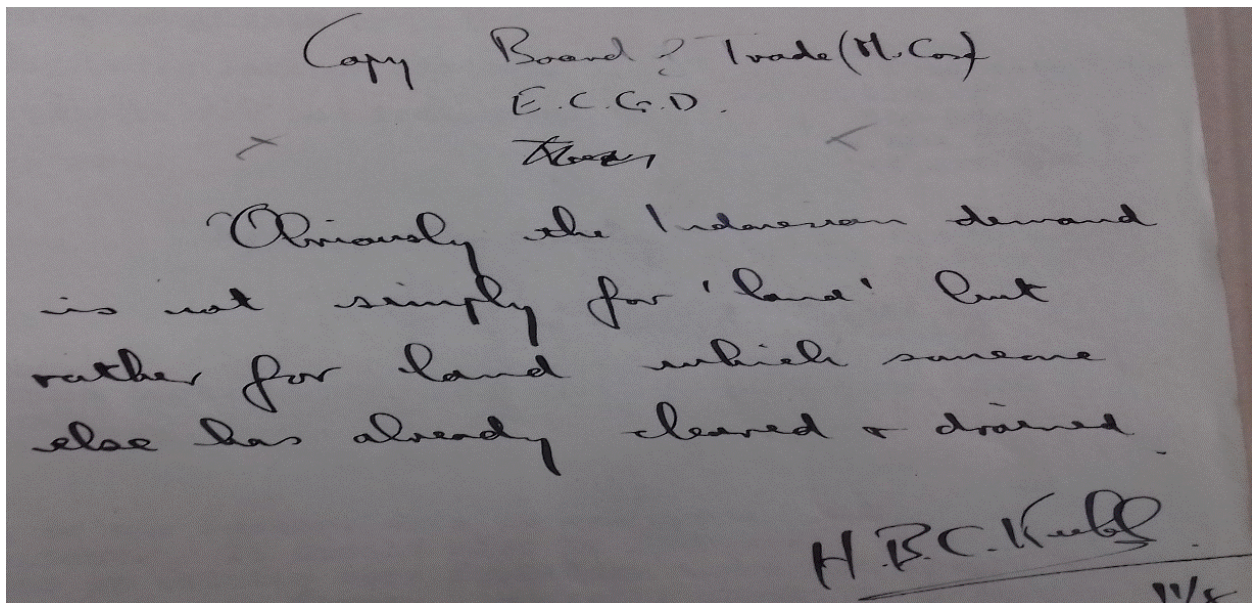 Copy Board of Trade (M. Cox)
E.C.G.D.
Obviously the Indonesian demand
is not simply for 'land' but
rather for land which someone
else has already cleared & drained.
H.B.C. Keeble
11/8